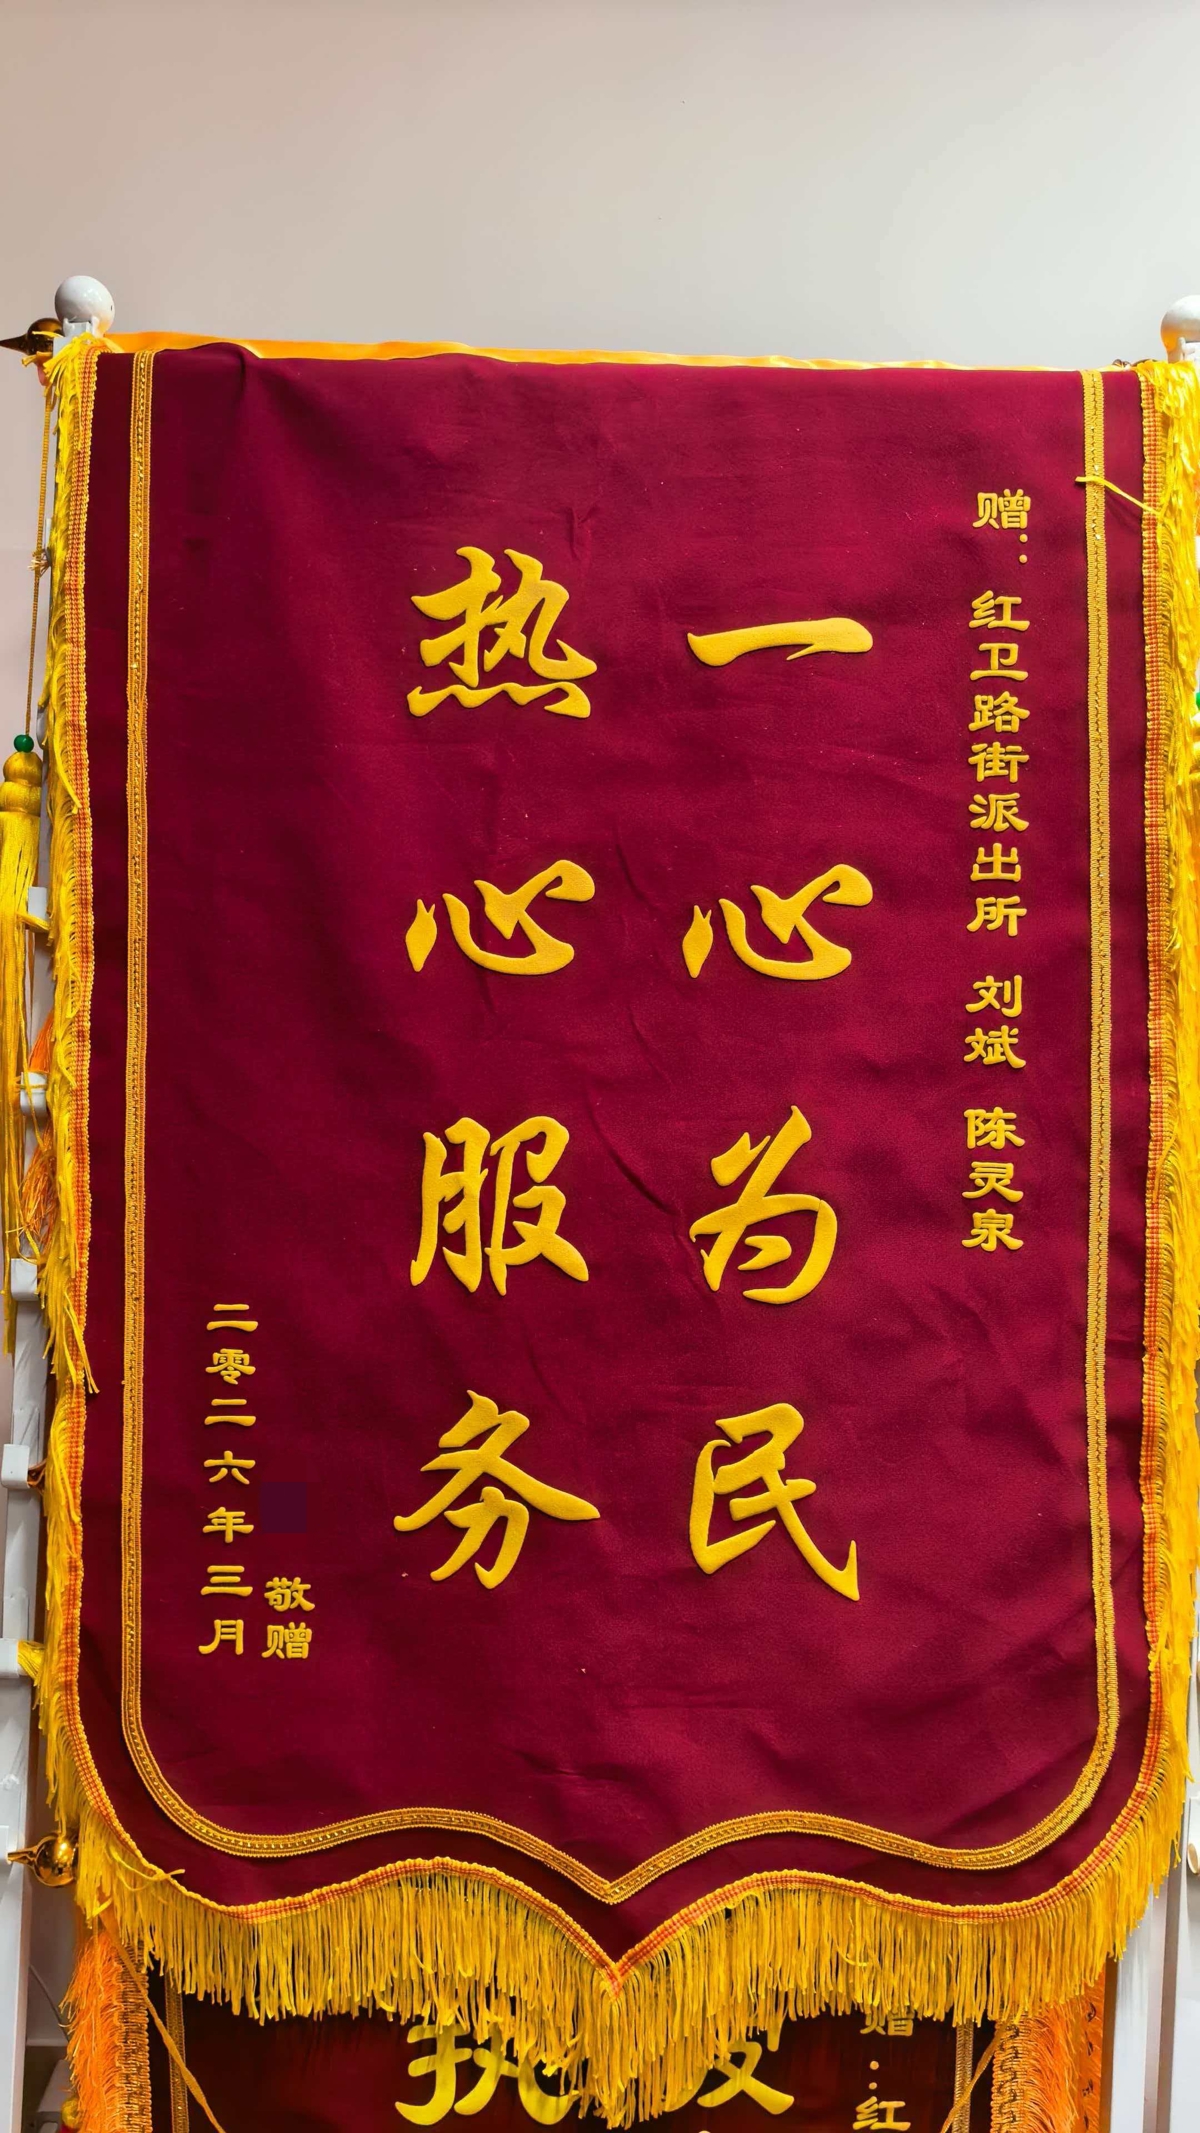 赠：红卫路街派出所 刘斌 陈灵泉
一心为民
热心服务
敬赠
二零二六年三月
赠：红
执